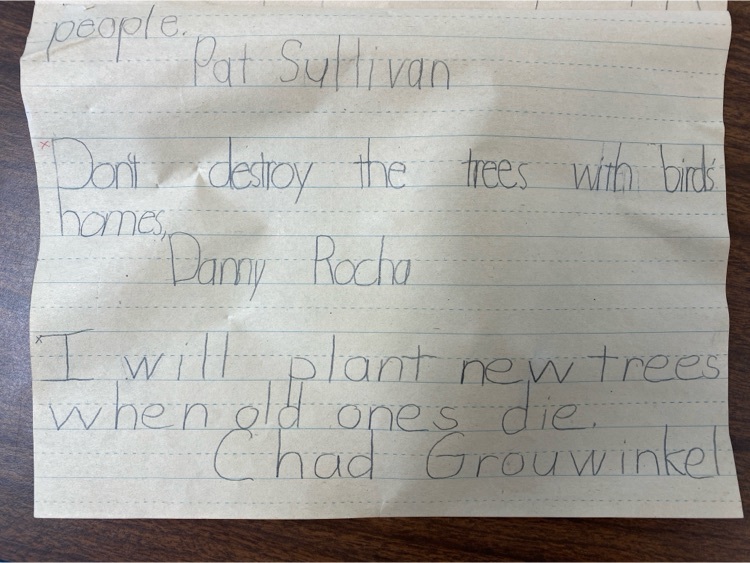 people.
Pat Sullivan
Don't destroy the trees with birds'
homes,
Danny Rocha
I will plant new trees
when old ones die.
Chad Grouwinkel